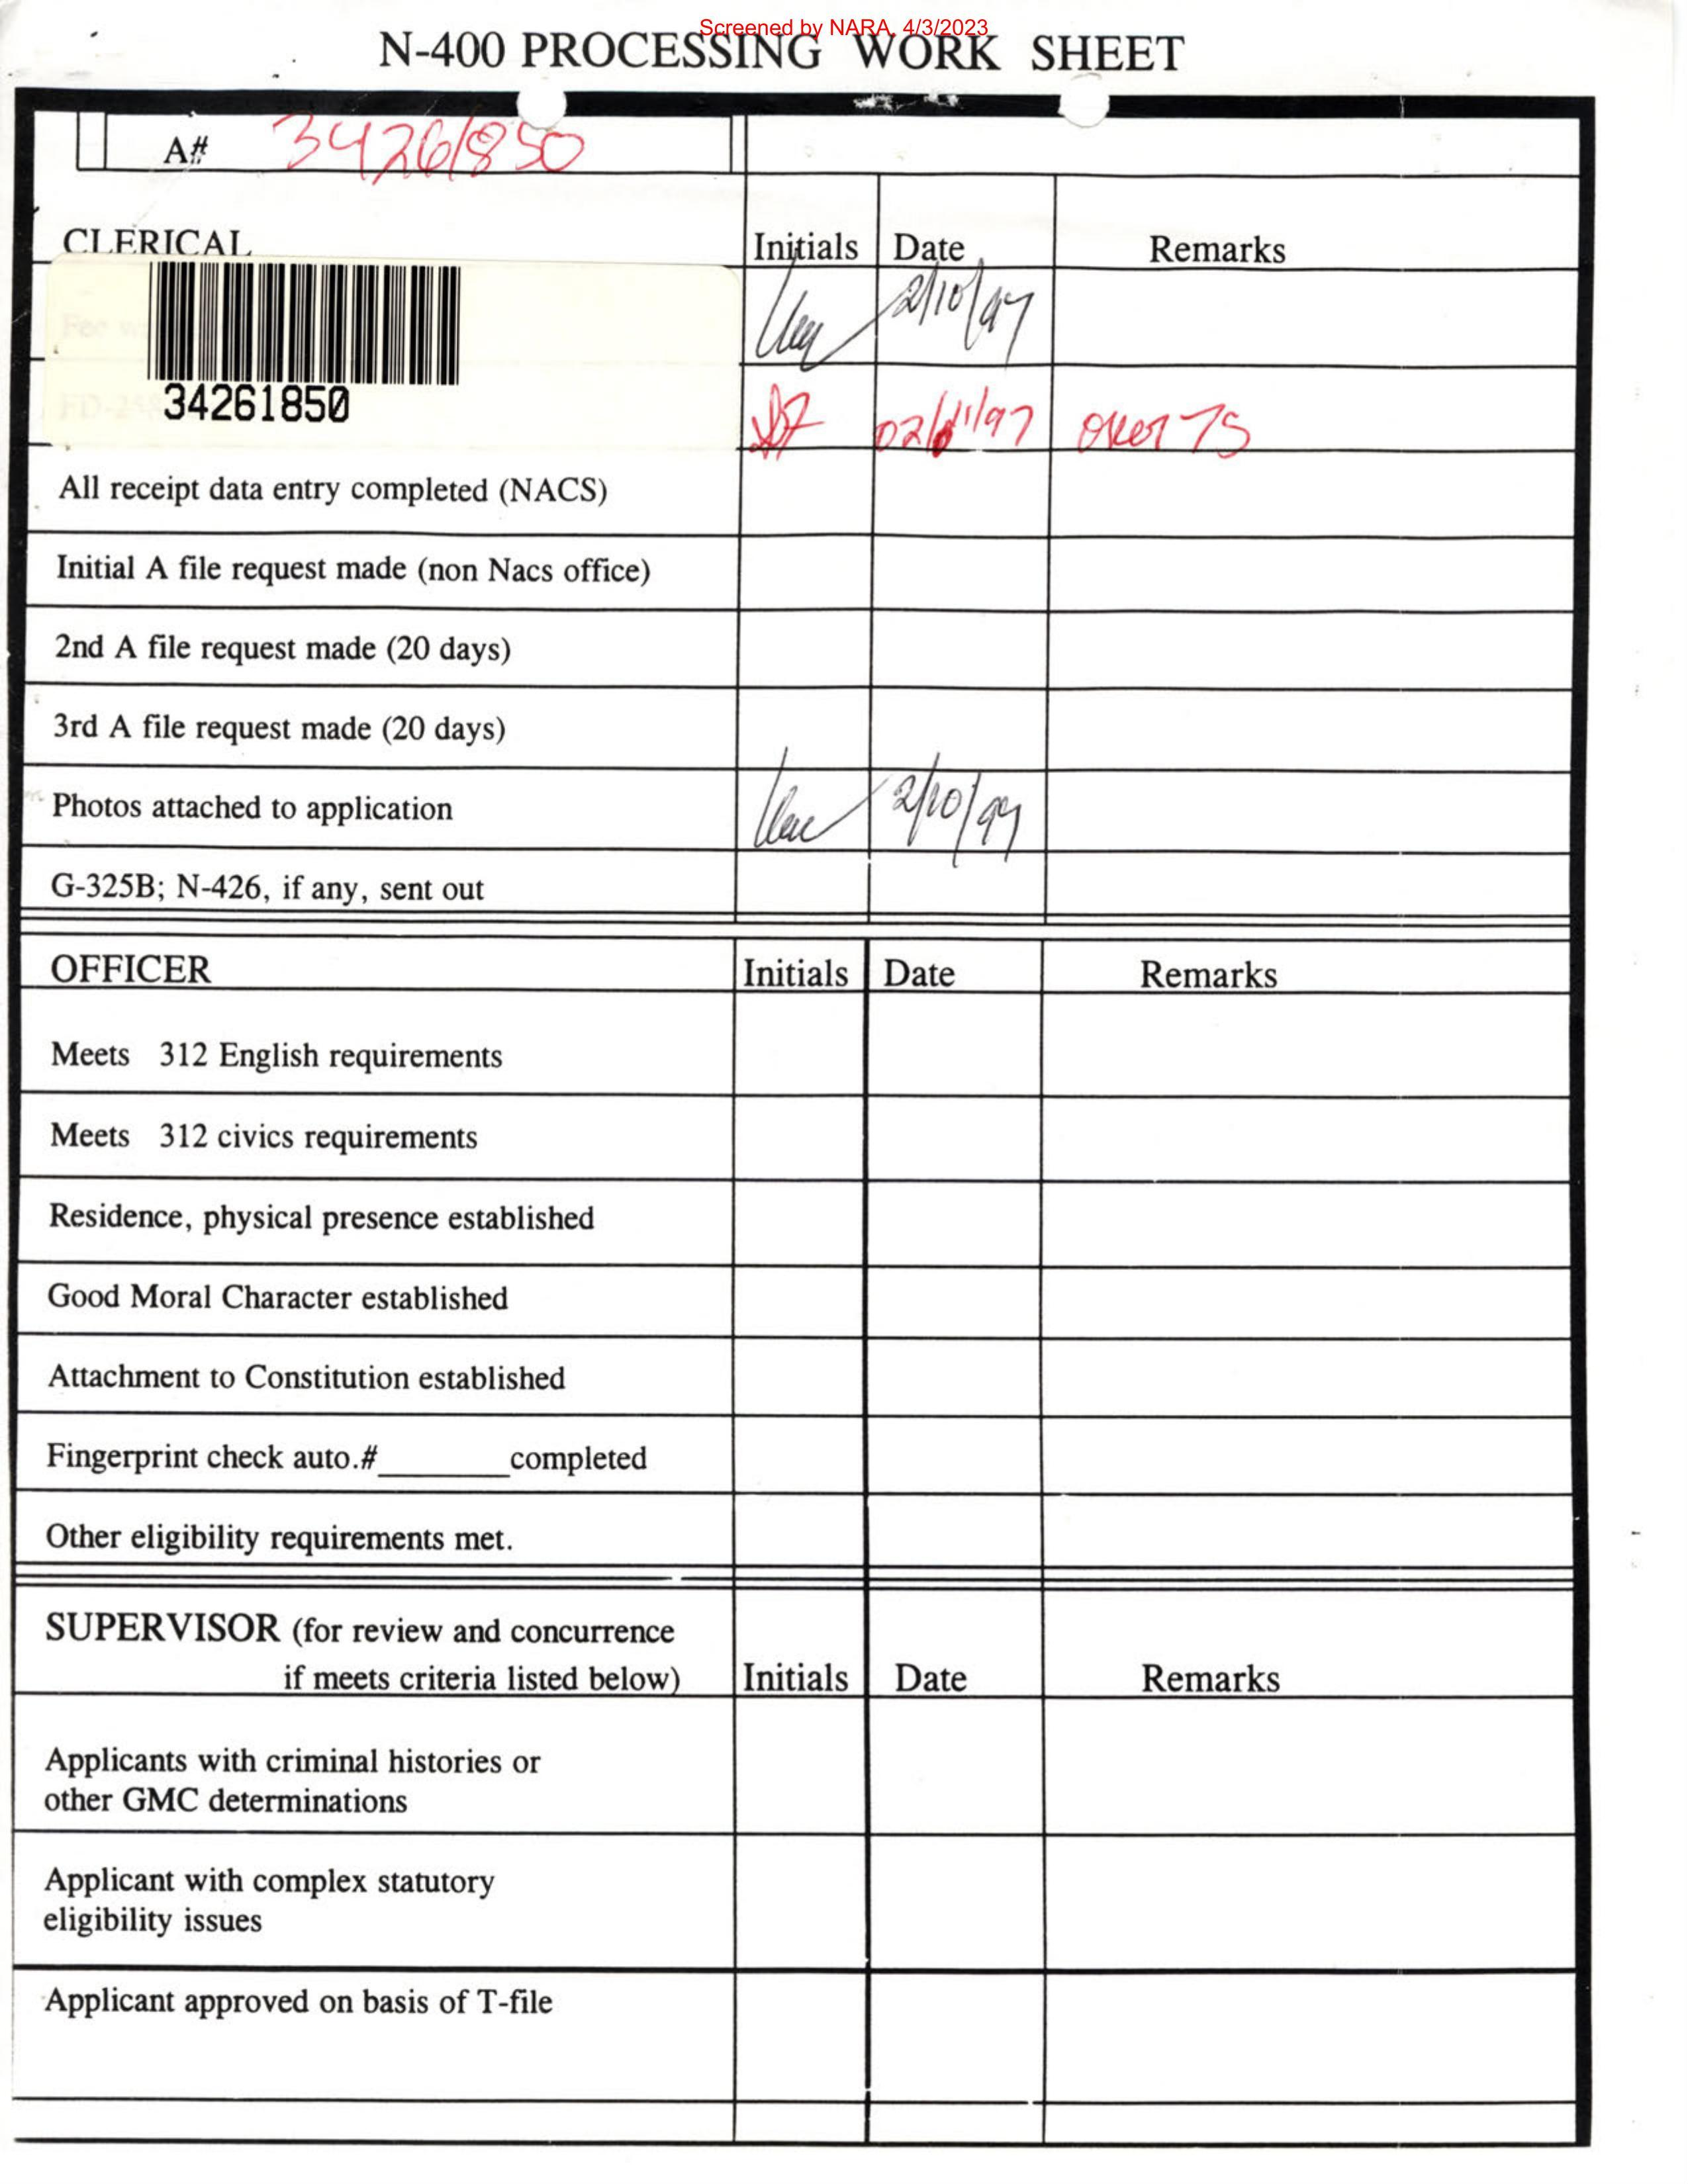 Screened by NARA, 4/3/2023
N-400 PROCESSING WORK SHEET
A# 34261850
CLERICAL Initials Date Remarks
2/10/97
34261850
02/11/97 over 75
All receipt data entry completed (NACS)
Initial A file request made (non Nacs office)
2nd A file request made (20 days)
3rd A file request made (20 days)
Photos attached to application 2/10/97
G-325B; N-426, if any, sent out
OFFICER Initials Date Remarks
Meets 312 English requirements
Meets 312 civics requirements
Residence, physical presence established
Good Moral Character established
Attachment to Constitution established
Fingerprint check auto.#________completed
Other eligibility requirements met.
SUPERVISOR (for review and concurrence
if meets criteria listed below) Initials Date Remarks
Applicants with criminal histories or
other GMC determinations
Applicant with complex statutory
eligibility issues
Applicant approved on basis of T-file